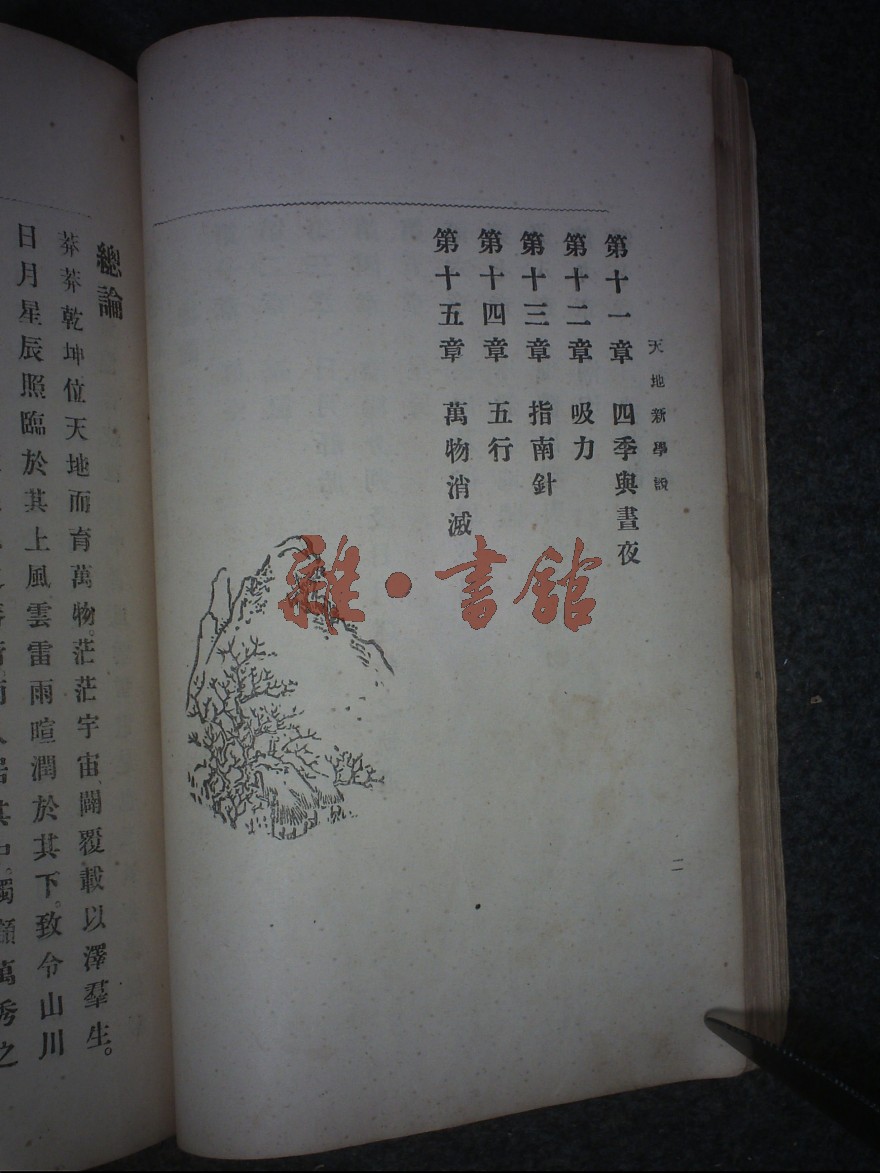 天地新學說
第十一章 四季與晝夜
第十二章 吸力
第十三章 指南針
第十四章 五行
第十五章 萬物消滅
二
雜·書館
總論
莽莽乾坤位天地而育萬物。茫茫宇宙闢覆載以澤羣生。
日月星辰照臨於其上風雲雷雨暄潤於其下。致令山川
居其中獨 萬秀之